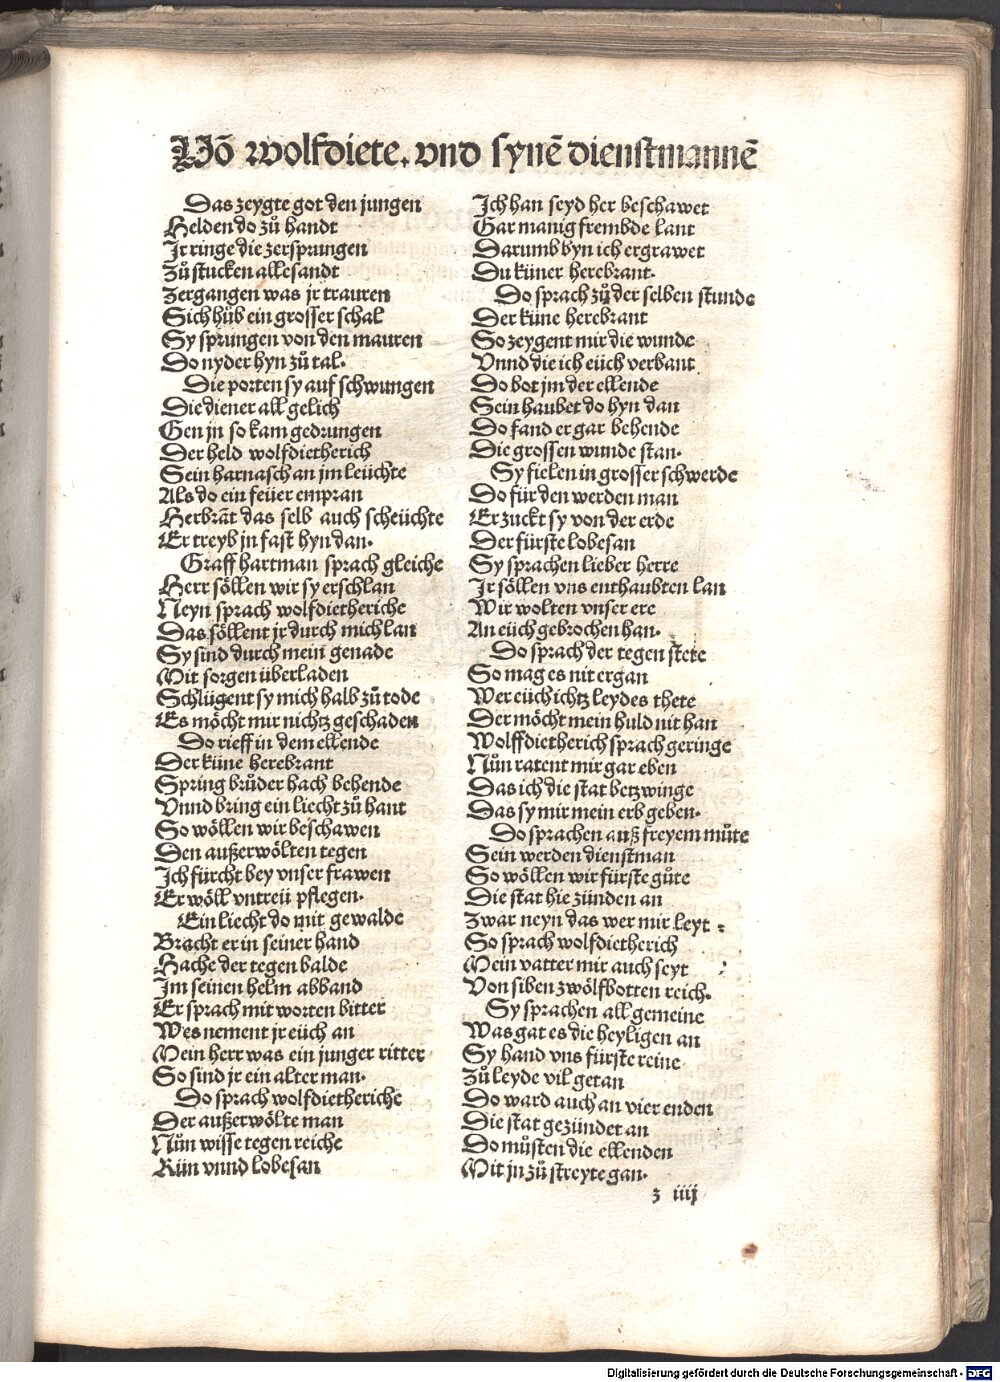 Võ wolfdiete. vnd synẽ dienstmannẽ
Das zeygte got den jungen
Helden do zů handt
Ir ringe die zersprungen
Zů stucken alle sandt
Zergangen was jr trauren
Sich hůb ein grosser schal
Sy sprungen von den mauren
Do nyder hyn zů tal.
Die porten sy auf schwungen
Die diener all gelich
Gen jn so kam gedrungen
Der held wolfdietherich
Sein harnasch an jm leüchte
Als do ein feüer empran
Herbrãt das selb auch scheüchte
Er treyb jn fast hyn dan.
Graff hartman sprach gleiche
Herr söllen wir sy erschlan
Neyn sprach wolfdietheriche
Das söllent jr durch mich lan
Sy sind durch mein genade
Mit sorgen überladen
Schlůgent sy mich halb zů tode
Es möcht mir nichtz geschaden
Do rieff in dem ellende
Der küne herebrant
Spring brůder hach behende
Vnnd bring ein liecht zů hant
So wöllen wir beschawen
Den außerwölten tegen
Ich fürcht bey vnser frawen
Er wöll vntreü pflegen.
Ein liecht do mit gewalde
Bracht er in seiner hand
Hache der tegen balde
Im seinen helm abband
Er sprach mit worten bitter
Wes nement jr eüch an
Mein herr was ein junger ritter
So sind jr ein alter man.
Do sprach wolfdietheriche
Der außerwölte man
Nůn wisse tegen reiche
Kün vnnd lobesan
Ich han seyd her beschawet
Gar manig frembde lant
Darumb byn ich ergrawet
Du küner herebrant.
Do sprach zů der selben stunde
Der küne herebrant
So zeygent mir die wunde
Vnnd die ich eüch verbant
Do bot jm der ellende
Sein haubet do hyn dan
Do fand er gar behende
Die grossen wunde stan.
Sy fielen in grosser schwerde
Do für den werden man
Er zuckt sy von der erde
Der fürste lobesan
Sy sprachen lieber herre
Ir söllen vns enthaubten lan
Wir wolten vnser ere
An eüch gebrochen han.
Do sprach der tegen stete
So mag es nit ergan
Wer eüch ichtz leydes thete
Der möcht mein huld nit han
Wolffdietherich sprach geringe
Nůn ratent mir gar eben
Das ich die stat betzwinge
Das sy mir mein erb geben.
Do sprachen auß freyem můte
Sein werden dienstman
So wöllen wir fürste gůte
Die stat hie zünden an
Zwar neyn das wer mir leyt
So sprach wolfdietherich
Mein vatter mir auch seyt
Von siben zwölfbotten reich.
Sy sprachen all gemeine
Was gat es die heyligen an
Sy hand vns fürste reine
Zů leyde vil getan
Do ward auch an vier enden
Die stat gezündet an
Do můsten die ellenden
Mit jn zů streyte gan.
z iiij
Digitalisierung gefördert durch die Deutsche Forschungsgemeinschaft - DFG